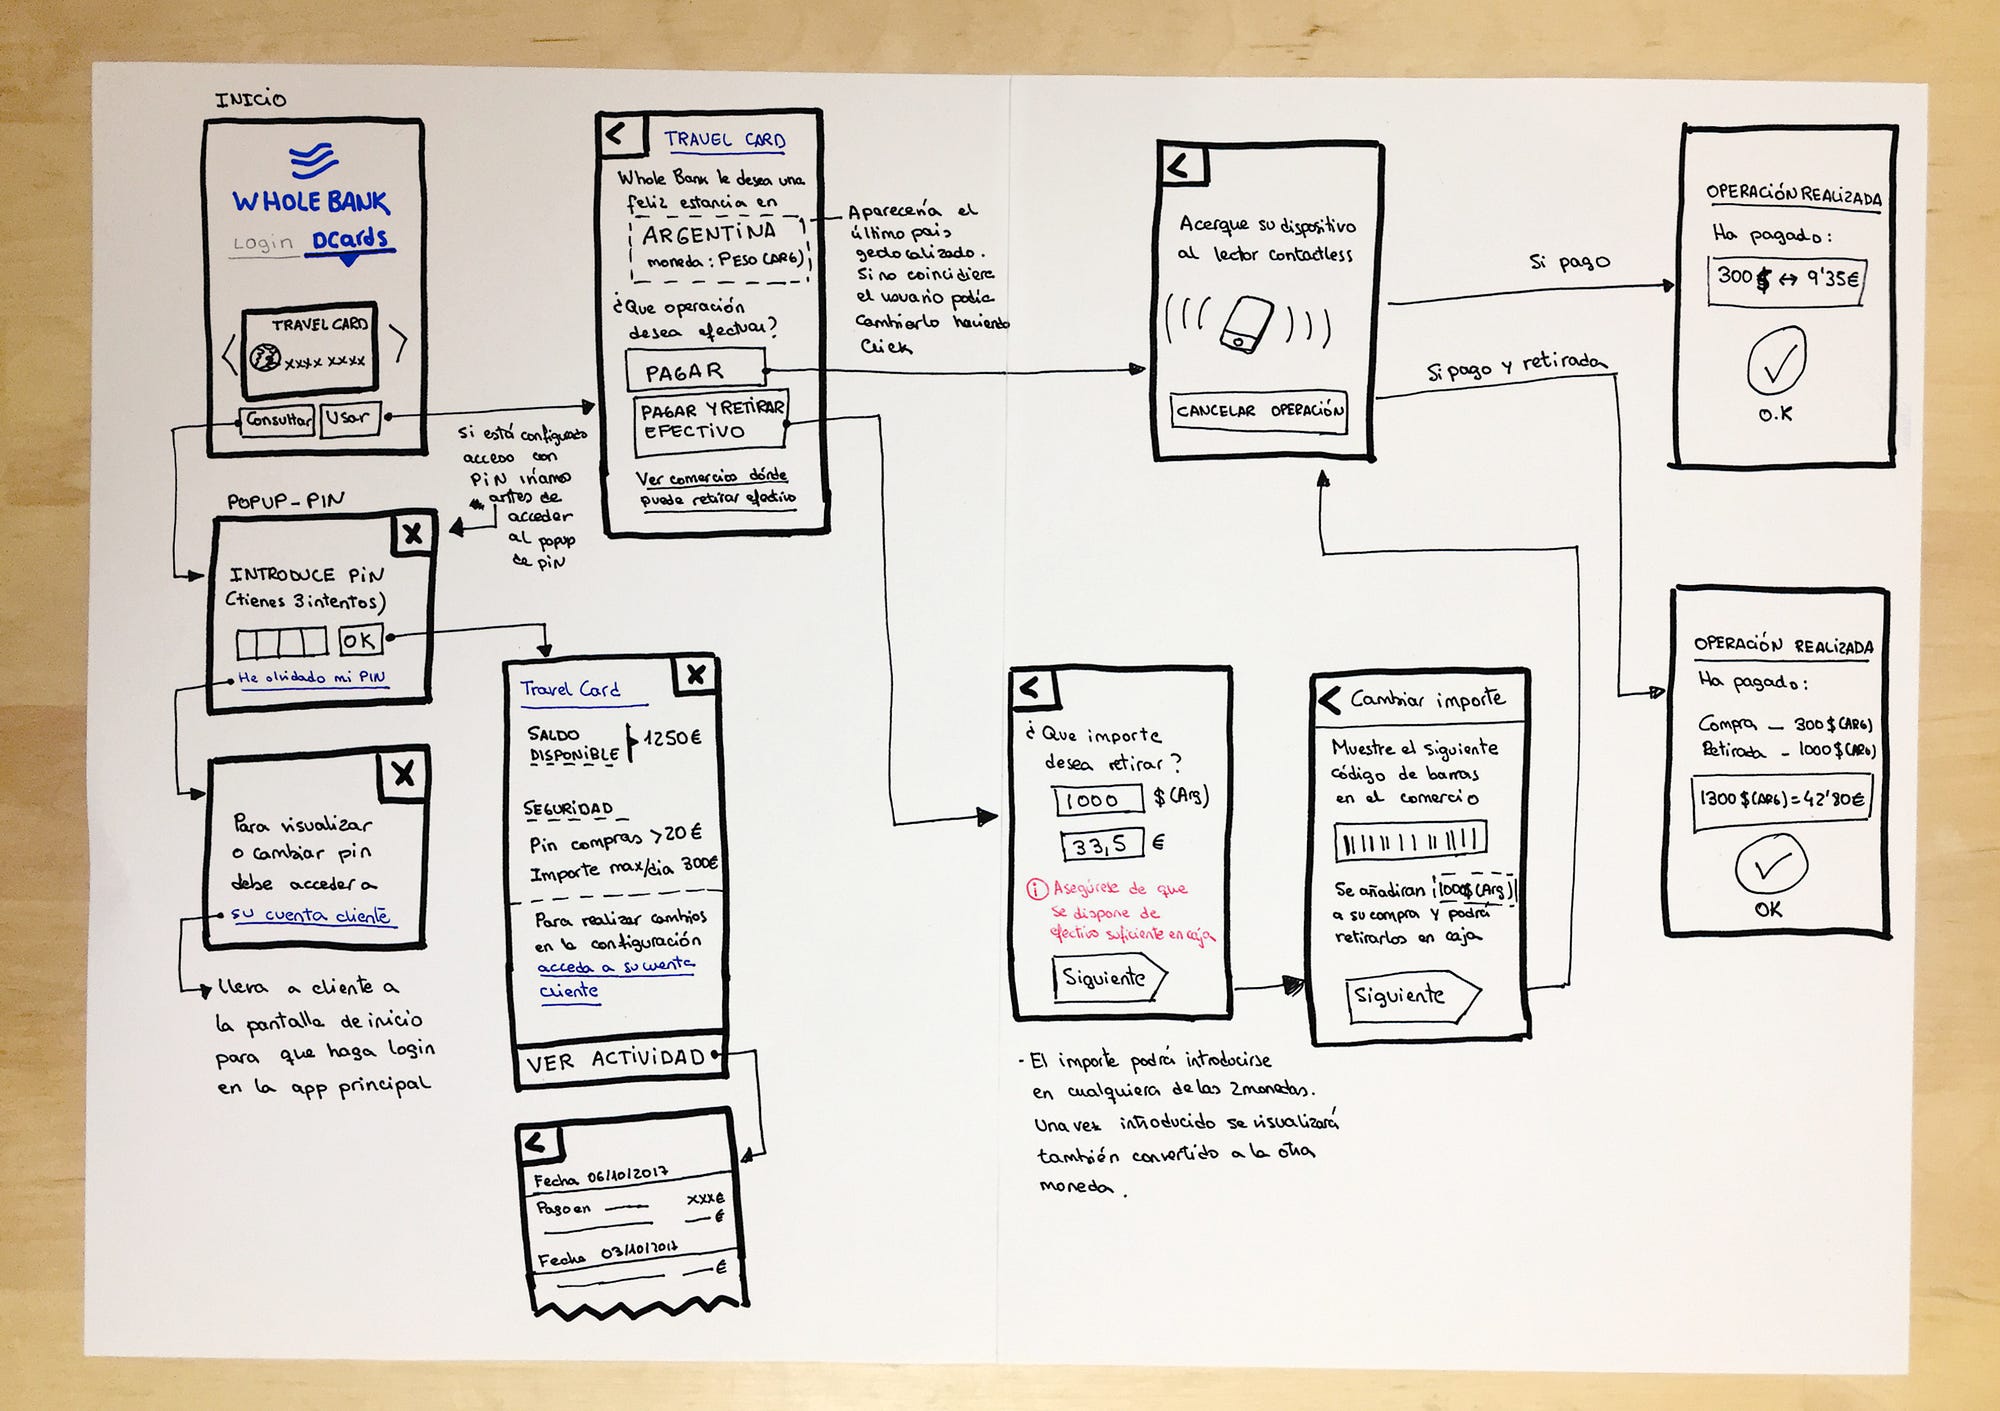 INICIO
WHOLE BANK
Login DCards
TRAVEL CARD
xxxx xxxx
Consultar
Usar
Si está configurado
acceso con
PIN iríamos
antes de
acceder
al popup
de pin
POPUP-PIN
X
INTRODUCE PIN
(tienes 3 intentos)
OK
He olvidado mi PIN
X
Para visualizar
o cambiar pin
debe acceder a
su cuenta cliente
lleva a cliente a
la pantalla de inicio
para que haga login
en la app principal
<
TRAVEL CARD
Whole Bank le desea una
feliz estancia en
ARGENTINA
moneda: PESO (ARG)
¿Que operación
desea efectuar?
PAGAR
PAGAR Y RETIRAR
EFECTIVO
Ver comercios dónde
puede retirar efectivo
Aparecería el
último país
geolocalizado.
Si no coincidiera
el usuario podía
cambiarlo haciendo
Click
Travel Card
X
SALDO
DISPONIBLE
1250€
SEGURIDAD
Pin compras >20€
Importe max/dia 300€
Para realizar cambios
en la configuración
acceda a su cuenta
cliente
VER ACTIVIDAD
<
Fecha 06/10/2017
Pago en
xxx€
€
Fecha 03/10/2017
€
<
Acerque su dispositivo
al lector contactless
CANCELAR OPERACIÓN
Si pago
Si pago y retirada
OPERACIÓN REALIZADA
Ha pagado:
300$ ↔ 9'35€
O.K
<
¿Que importe
desea retirar?
1000 $(Arg)
33,5 €
i Asegúrese de que
se dispone de
efectivo suficiente en caja
Siguiente
- El importe podrá introducirse
en cualquiera de las 2 monedas.
Una vez introducido se visualizará
también convertido a la otra
moneda.
< Cambiar importe
Muestre el siguiente
código de barras
en el comercio
Se añadiran 1000$(Arg)
a su compra y podrá
retirarlos en caja
Siguiente
OPERACIÓN REALIZADA
Ha pagado:
Compra - 300$(ARG)
Retirada - 1000$(ARG)
1300$(ARG)=42'80€
OK